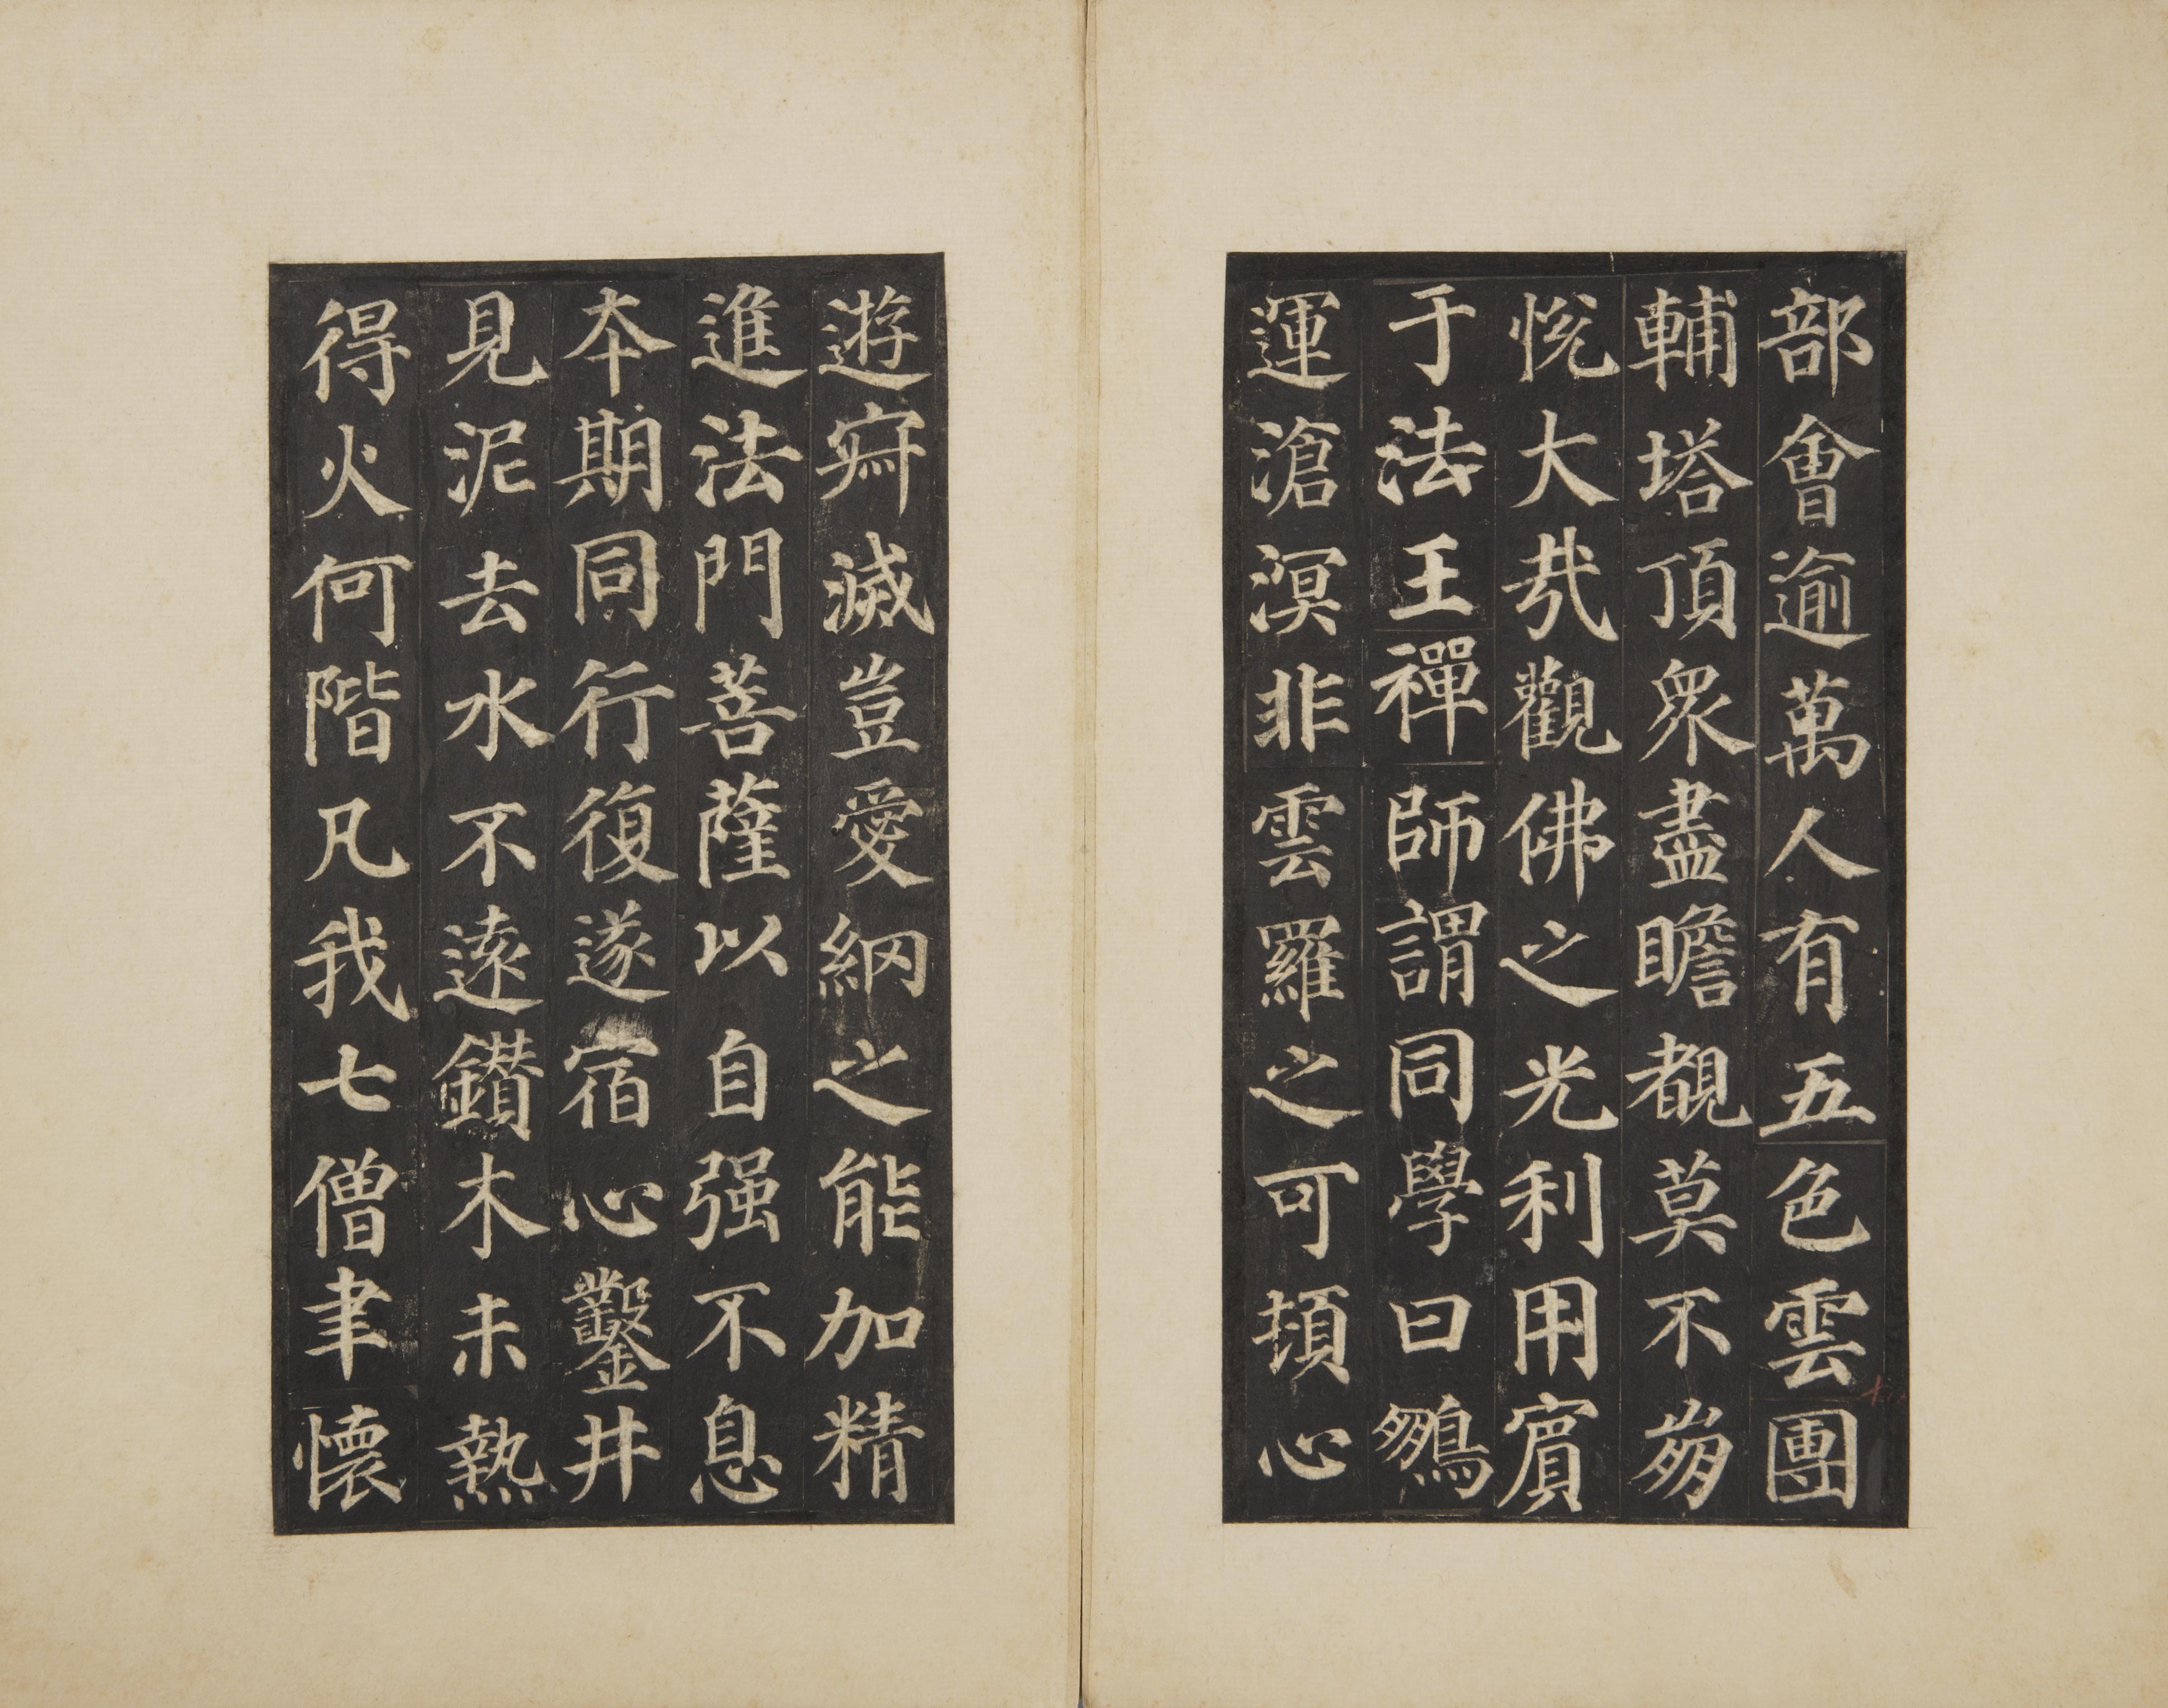 部會逾萬人有五色雲團
輔塔頂衆盡瞻覩莫不㔟
悅大㢤觀佛之光利用賓
于法王禪師謂同學曰鵽
運滄溟非雲羅之可頓心
遊寂滅豈愛網之能加精
進法門菩薩以自强不息
本期同行復遂宿心鑿井
見泥去水不遠鑽木未熱
得火何階凡我七僧聿懷